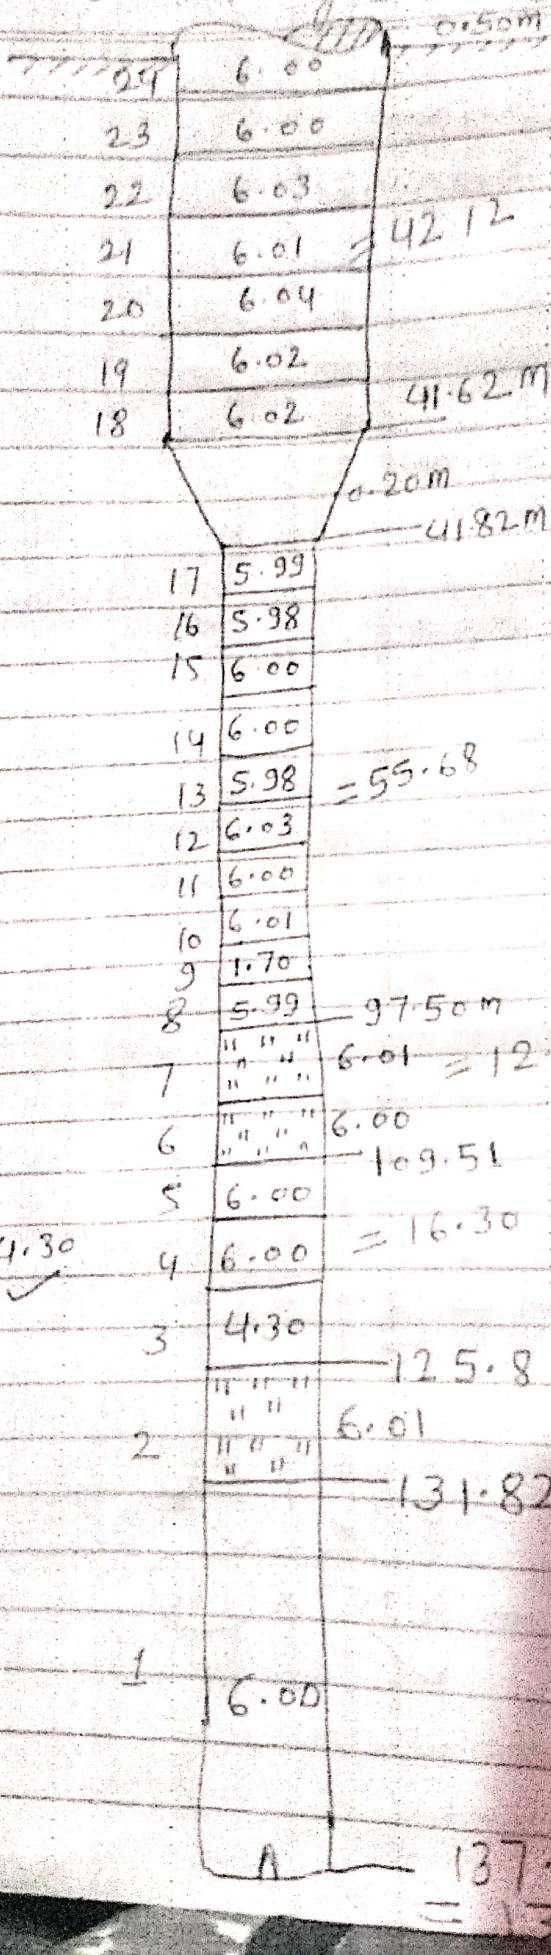 0.50m
24 6.00
23 6.00
22 6.03
21 6.01 = 42.12
20 6.04
19 6.02
18 6.02 41.62m
0.20m
41.82m
17 5.99
16 5.98
15 6.00
14 6.00
13 5.98 = 55.68
12 6.03
11 6.00
10 6.01
9 1.70
8 5.99 97.50m
7 6.01 = 12
6 6.00
109.51
5 6.00
4.30 4 6.00 = 16.30
3 4.30
125.8
2 6.01
131.82
1 6.00
137